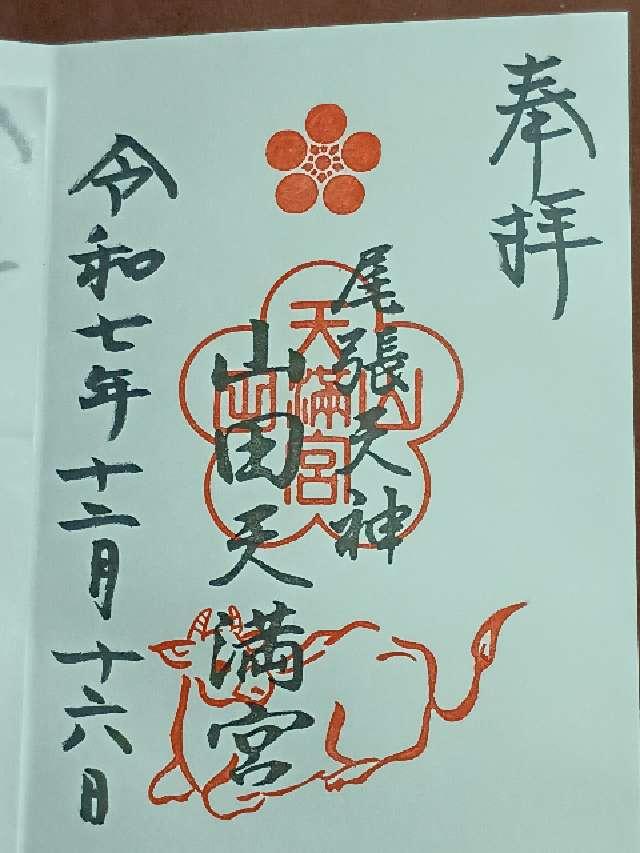 奉拝
尾張天神
山田天満宮
山田
天満宮
令和七年十二月十六日